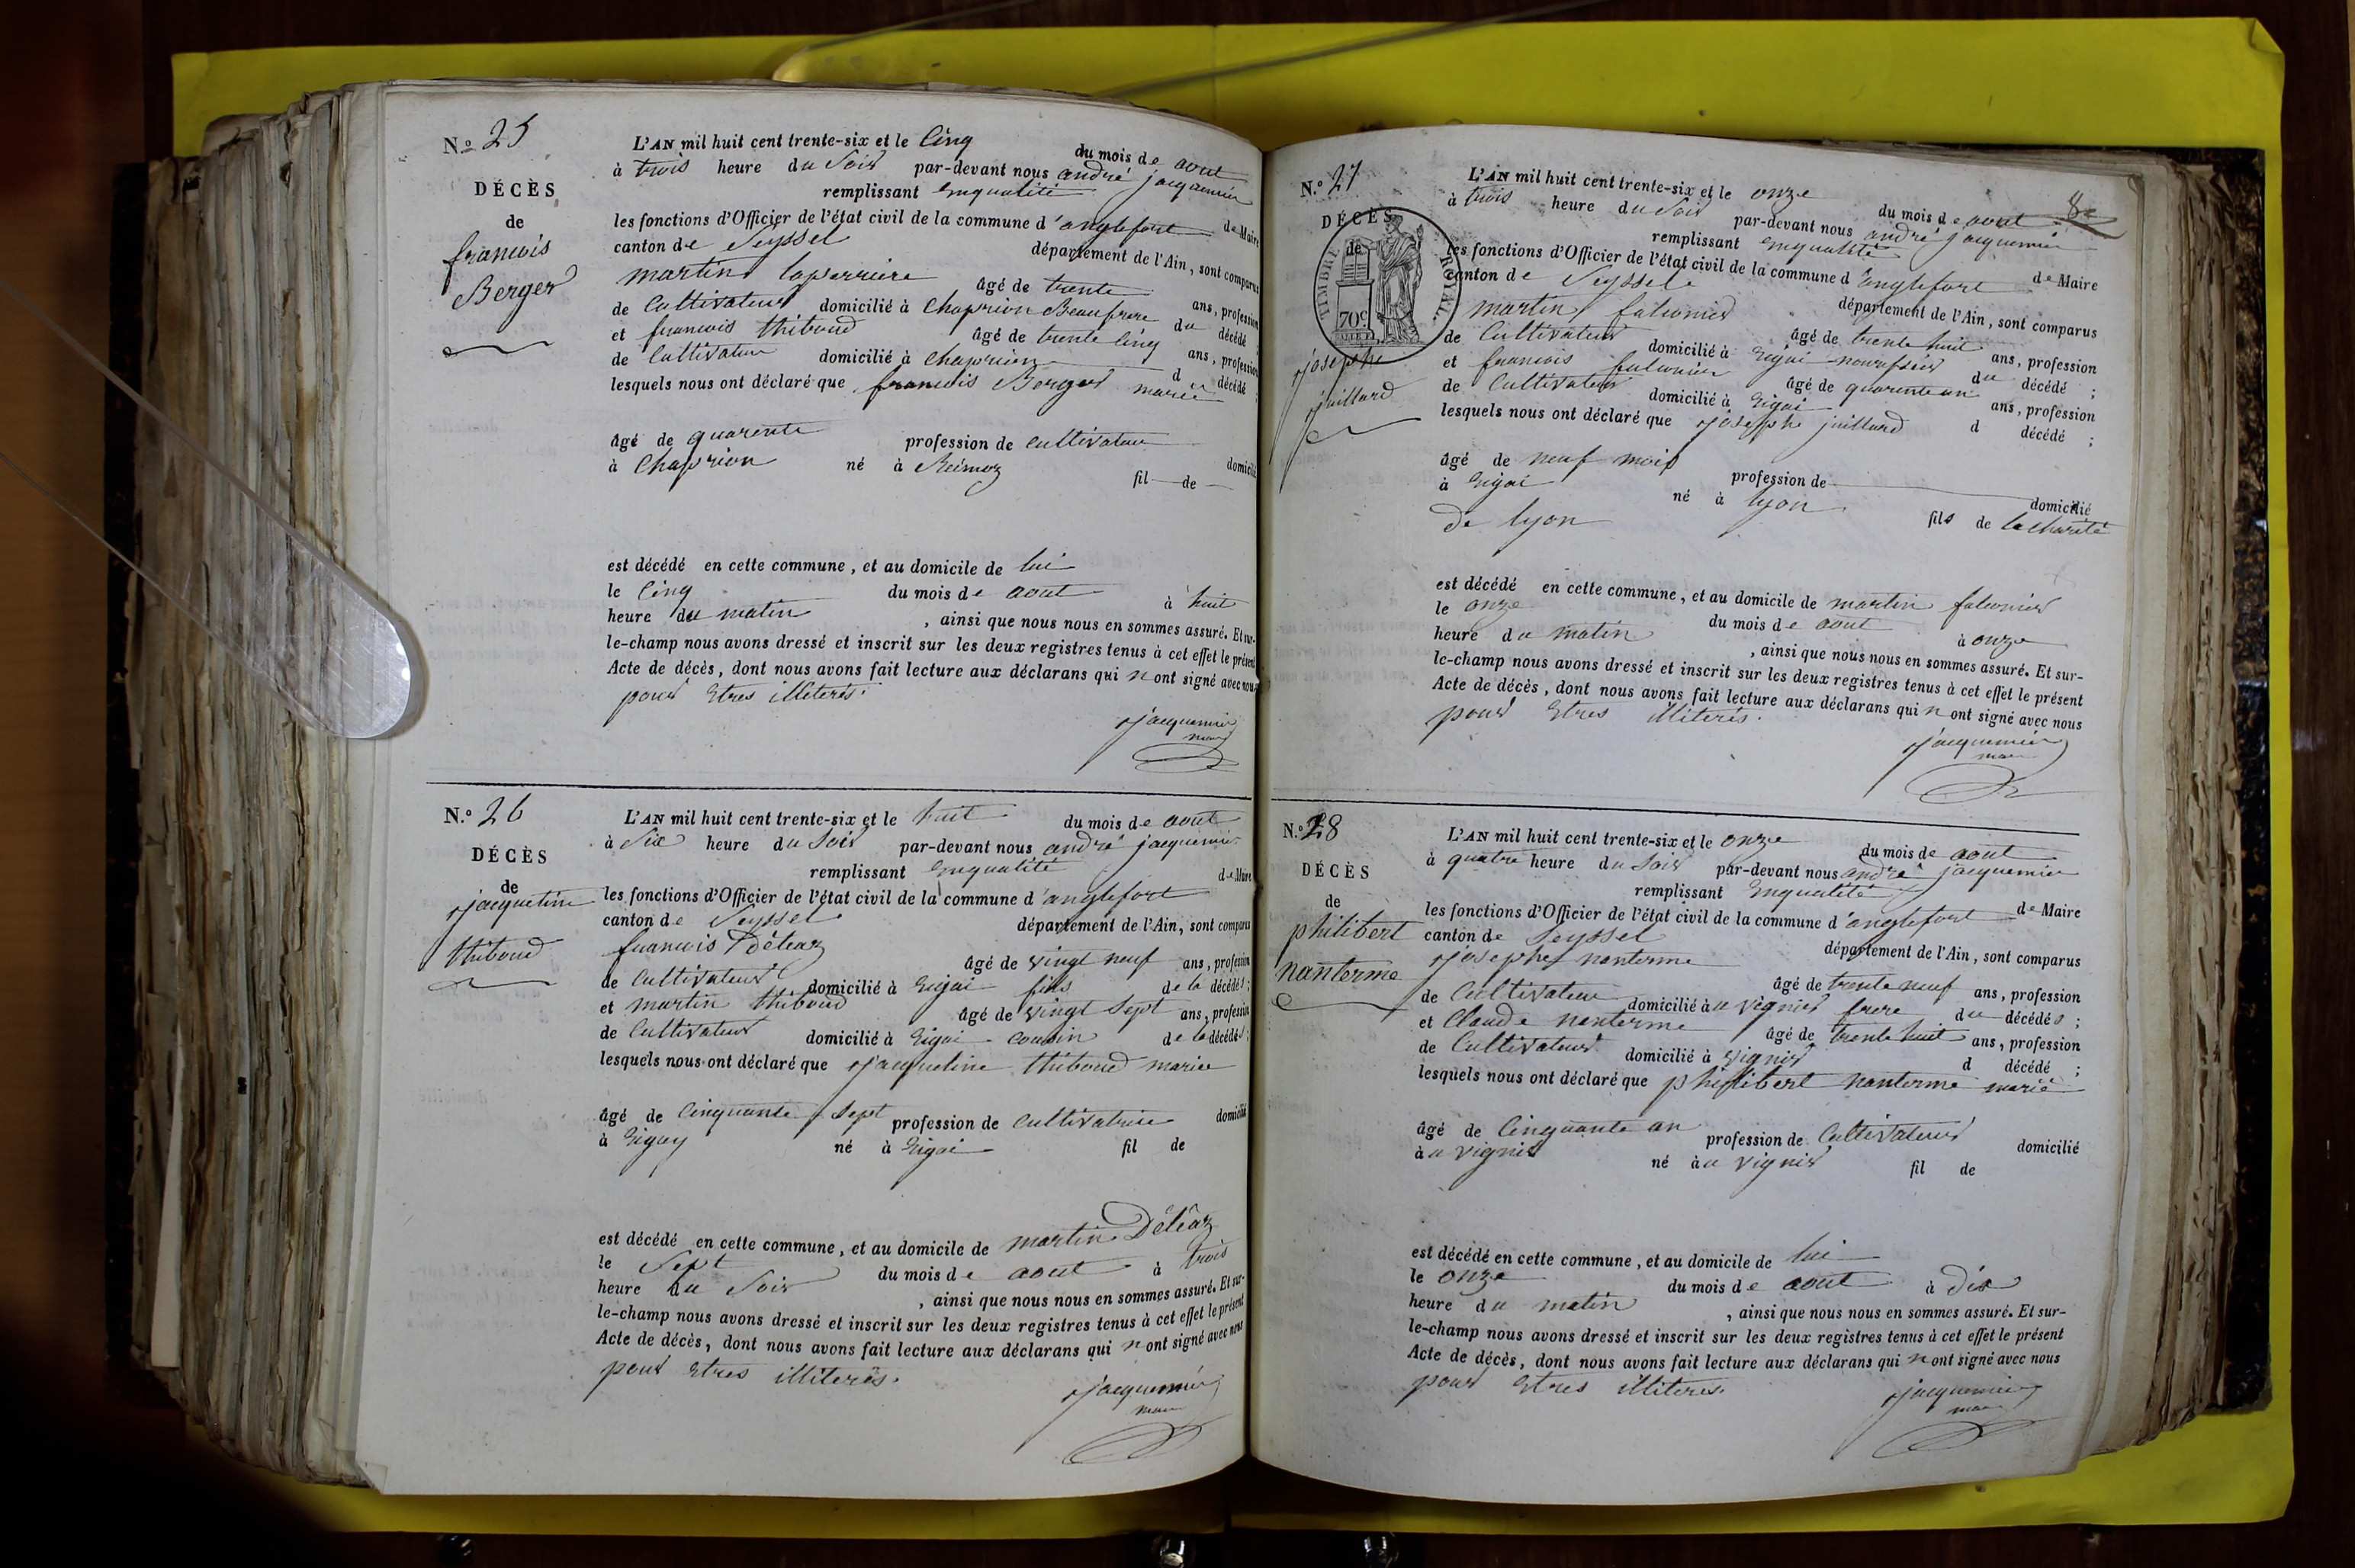 Nº 25
DÉCÈS
de
francois
Berger
L'AN mil huit cent trente-six et le Cinq du mois de aout
à trois heure du Soir par-devant nous andré jacquemier
remplissant Enqualité de Maire
les fonctions d'Officier de l'état civil de la commune d'anglefort
canton de Seyssel département de l'Ain, sont comparus
martin laperriere âgé de trente ans, profession
de Cultivateur domicilié à Chaprion Beaufrere du décédé
et francois thiboud âgé de trente cinq ans, profession
de Cultivateur domicilié à Chaprion d décédé ;
lesquels nous ont déclaré que francois Berger marié
âgé de quarente profession de cultivateur domicilié
à Chaprion né à fil de
est décédé en cette commune, et au domicile de lui
le Cinq du mois de aout à huit
heure du matin , ainsi que nous nous en sommes assuré. Et sur-
le-champ nous avons dressé et inscrit sur les deux registres tenus à cet effet le présent
Acte de décès, dont nous avons fait lecture aux déclarans qui n ont signé avec nous
pour Etres illiterés.
jacquemier
maire
N.º 26
DÉCÈS
de
jacqueline
thiboud
L'AN mil huit cent trente-six et le huit du mois de aout
à Six heure du Soir par-devant nous andré jacquemier
remplissant Enqualité de Maire
les fonctions d'Officier de l'état civil de la commune d'anglefort
canton de Seyssel département de l'Ain, sont comparus
francois Déléaz âgé de vingt neuf ans, profession
de Cultivateur domicilié à Eigai fils de la décédés ;
et martin thiboud âgé de vingt Sept ans, profession
de Cultivateur domicilié à Eigai cousin de la décédés ;
lesquels nous ont déclaré que jacqueline thiboud mariee
âgé de Cinquante Sept profession de cultivatrice domicilié
à Eigay né à Eigai fil de
est décédé en cette commune, et au domicile de martin Déléaz
le Sept du mois de aout à trois
heure du Soir , ainsi que nous nous en sommes assuré. Et sur-
le-champ nous avons dressé et inscrit sur les deux registres tenus à cet effet le présent
Acte de décès, dont nous avons fait lecture aux déclarans qui n ont signé avec nous
pour Etres illiterés.
jacquemier
maire
N.º 27
DÉCÈS
de
TIMBRE ROYAL
70c
josephe
juillard
L'AN mil huit cent trente-six et le onze du mois de aout
à trois heure du Soir par-devant nous andré jacquemier
remplissant Enqualité de Maire
les fonctions d'Officier de l'état civil de la commune d'anglefort
canton de Seyssel département de l'Ain, sont comparus
martin falconier âgé de trente huit ans, profession
de Cultivateur domicilié à Eigai du décédé ;
et francois falconier âgé de quarente an ans, profession
de Cultivateur domicilié à Eigai d décédé ;
lesquels nous ont déclaré que josephe juillard
âgé de neuf mois profession de domicilié
à Eigai né à lyon fils de la charité
de lyon
est décédé en cette commune, et au domicile de martin falconier
le onze du mois de aout à onze
heure du matin , ainsi que nous nous en sommes assuré. Et sur-
le-champ nous avons dressé et inscrit sur les deux registres tenus à cet effet le présent
Acte de décès, dont nous avons fait lecture aux déclarans qui n ont signé avec nous
pour Etres illiterés.
jacquemier
maire
N.º 28
DÉCÈS
de
philibert
nanterme
L'AN mil huit cent trente-six et le onze du mois de aout
à quatre heure du Soir par-devant nous andré jacquemier
remplissant Enqualité de Maire
les fonctions d'Officier de l'état civil de la commune d'anglefort
canton de Seyssel département de l'Ain, sont comparus
josephe nanterme âgé de trente neuf ans, profession
de Cultivateur domicilié à u vignier frere du décédés ;
et Claude nanterme âgé de trente huit ans, profession
de Cultivateur domicilié à vignier d décédé ;
lesquels nous ont déclaré que philibert nanterme marié
âgé de Cinquante an profession de Cultivateur domicilié
à u vignier né à u vignier fil de
est décédé en cette commune, et au domicile de lui
le onze du mois de aout à dix
heure du matin , ainsi que nous nous en sommes assuré. Et sur-
le-champ nous avons dressé et inscrit sur les deux registres tenus à cet effet le présent
Acte de décès, dont nous avons fait lecture aux déclarans qui n ont signé avec nous
pour Etres illiteres.
jacquemier
maire